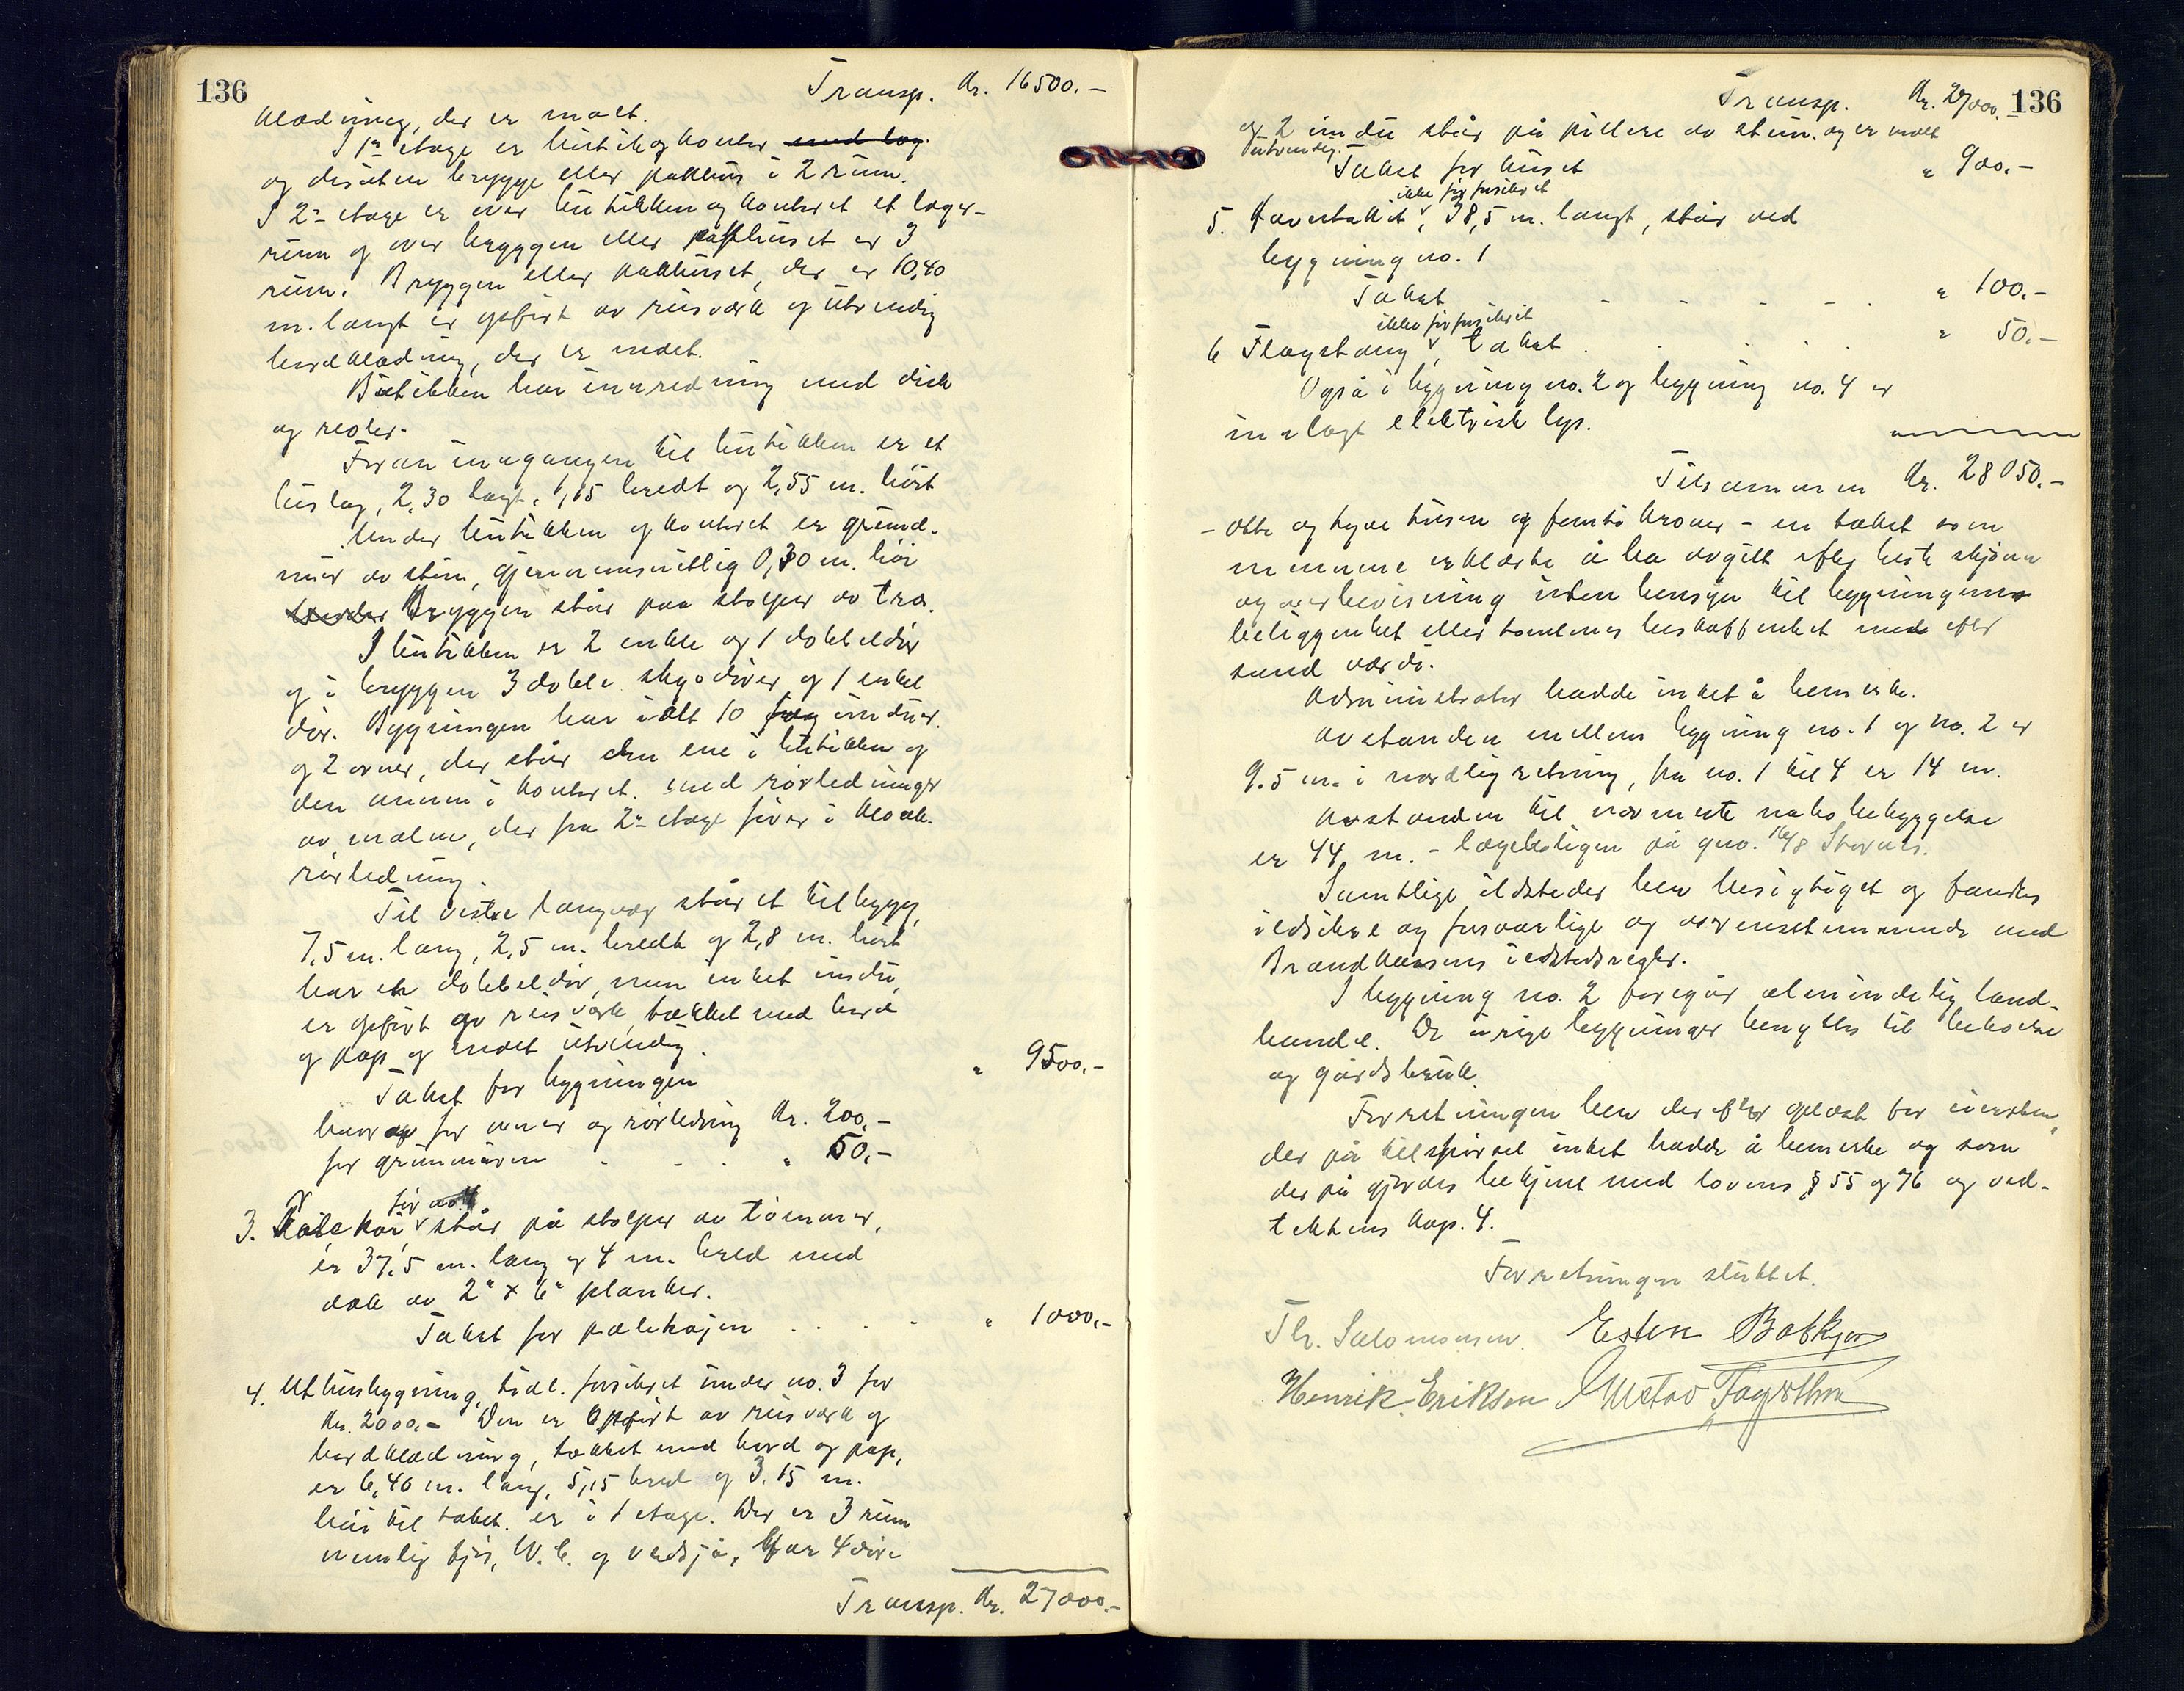 136
Transp. Kr. 16500.-
klædning, der er malt.
I 1ste etage er butik og kontor med lag.
og desuten brygge eller pakhus i 2 rum.
I 2- etage er over butikken og kontoret et lager-
rum og over bryggen eller pakhuset er 3
rum. Bryggen eller pakhuset, der er 10,40
m. langt er opført av reisverk og utvendig
bordklædning, der er malet.
Butikken har innredning med disk
og reoler.
Foran inngangen til butikken er et
bislag, 2,30 langt, 1,15 bredt og 2,55 m. høit
Under butikken og kontoret er grund-
mur av sten, gjennemsnitlig 0,30 m. høi
under Bryggen står paa stolper av træ.
I butikken er 2 enkle og 1 dobbeldør
og i bryggen 3 doble skyvdører og 1 enkel
dør. Bygningen har ialt 10 fag vinduer
og 2 ovner, der står den ene i butikken og
den annen i kontoret med rørledninger
av malm, der fra 2- etage fører i kloak-
rørledning.
Til vestre langveg står et tilbygg,
7,5 m. lang, 2,5 m. bredt og 2,8 m. høit
har en dobbeldør, men intet vindu,
er opført av reisverk, tækket med bord
og pap og malet utvendig.
Takst for bygningen " 9500.-
hvorav for ovner og rørledning Kr. 200.-
for grunmuren - - - " 50.-
3. Pælekai står på stolper av tømmer,
er 37,5 m. lang og 4 m. bred med
dæk av 2" x 6" planker.
Takst for pælekajen . . . - " 1000.-
4. Uthusbygning, tidl. forsikret under no. 3 for
Kr. 2000.- Den er opført av reisverk og
bordklædning, tækket med bord og pap,
er 6,40 m. lang, 5,15 bred og 3,15 m.
høi til taket. er i 1 etage. Der er 3 rum
nemlig fjøs, W.C. og vedsjå, har 4 døre
Transp. Kr. 27000.-
136
Transp. Kr. 27000.-
og 2 vindu står på pillere av sten. og er malt
utvendig.
Takst for huset " 900.-
ikke før forsikret
5. Havestakit, 38,5 m. langt, står ved
bygning no. 1
Takst - - - - - . " 100.-
ikke før forsikret
6 Flagstang, takst . . . . " 50.-
Også i bygning no. 2 og bygning no. 4 er
innlagt elektrisk lys.
Tilsammen Kr. 28050.-
- Otte og tyve tusen og femti kroner - en takst som
mennene erklærte å ha avgitt efter beste skjønn
og overbevisning uten hensyn til bygningens
beliggenhet eller tomtenes beskaffenhet med efter
sand værdi.
Administrator hadde intet å bemerke.
Avstanden mellem bygning no. 1 og no. 2 er
9.5 m. i nordlig retning, fra no. 1 til 4 er 14 m.
Avstanden til nærmeste nabobebyggelse
er 44 m. - lægeboligen på gno. 16/8 Stornes.
Samtlige ildsteder blev besigtiget og fandtes
ildsikre og forsvarlige og overensstemmende med
Brandkassens ildstedsregler.
I bygning no. 2 foregår almindelig land-
handel. De øvrige bygninger benyttes til beboelse
og gårdsbruk.
Forretningen blev derefter oplest for eieren,
der på tilspørsel intet hadde å bemerke og som
der på gjordes bekjent med lovens § 55 og 76 og ved-
tektens kap. 4.
Forretningen sluttet.
Th. Salomonsen. Esten
Henrik Eriksen Gustav